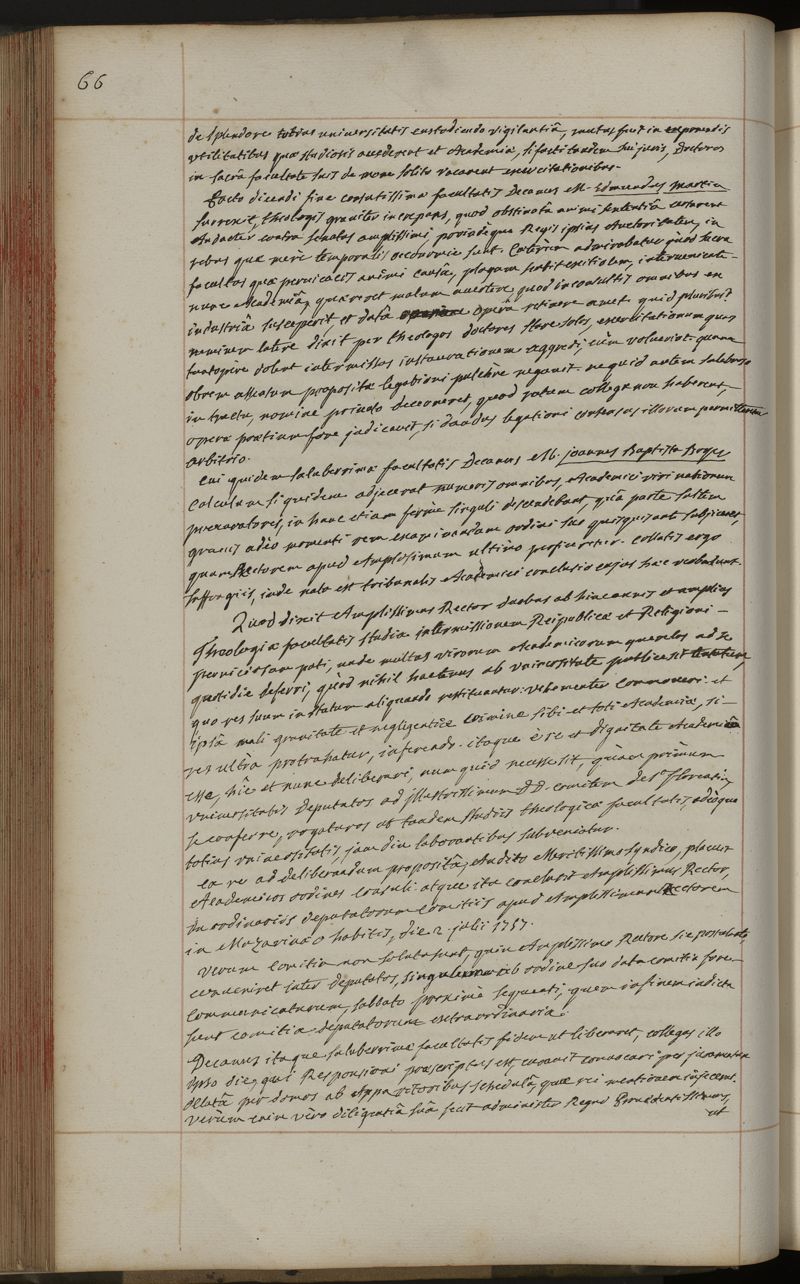 66
de splendore totius universitatis custodiendo vigilantiâ, multus fuit in exponendis
utilitatibus quæ studiosis accederent et Academiæ, si facti tandem sui juris, Doctores
in sacrâ facultate suis de more solito vacarent exercitationibus.
Facto dicendi fine consultissimæ facultatis Decanus M. Edmundus Martin
surrexit, theologis graviter increpans, quod obstinatâ animi sententiâ certarent
Audacter contra senatus amplissimi, perindèque Regis ipsius Auctoritatem, in
rebus quæ merè temporalis œconomiæ sunt. Cæterùm admirabatur quod sacra
facultas quæ pervicacis animi causâ, plagam sentit exitialem, interveniente
nunc Academiâ, quæreret malum avertere quod inconsultis omnibus en
industriâ susceperit, et datâ operâ retinere avet. quid pluribus?
neminem latere dixit per theologos doctores stare solos, exercitationum quas
tantopere dolent intermissas instaurationem aggredi, cùm voluerint. quam
obrem assensum propositæ legationi pulchrè negavit. ne quid autem salebroso
in tractu, nomine privato decerneret, quod ratum collegæ non haberent,
operæ prætium fore judicavit, si dandus legationi consensus illorum permitteretur
arbitrio.
Cui quidem saluberrimæ facultatis Decanus M. Joannes Baptista Boyer
Calculum siquidem adjecerat numeris omnibus, Academici viri nationum
procuratores, in hanc etiam fermè singuli descendebant, quâ parte saltem
gravis adeò momenti rem examinandam ordini suo quisquis antè subjiceret,
quam Rectorem apud Amplissimum ultimò profiteretur. Collatis ergo
suffragiis, inde nata est tribunalis Academici conclusio cujus hæc verba sunt.
Quod dixit Amplissimus Rector duobus ab hinc annis et ampliùs
Theologiæ facultatis studia intermissionem Reipublicæ et Religioni
perniciosam pati, unde multas virorum Academicorum querelas ad se
quotidie deferri, quòd nihil hactenus ab universitate publicè sit tentatum,
quo res suum in statum aliquando restituantur: vehementer commoveri et
ipsâ mali gravitate et negligentiæ crimine sibi et toti Academiæ, si
res ultrà protrahatur, inferendo. itaque è re et dignitate Academiæ
esse, hîc et nunc deliberari, num quid necesse sit, quàm primùm
universitatis Deputatos ad illustrissimum DD. comitem de st florentin
se conferre, rogaturos ut tandem studiis theologicæ facultatis, adeòque
totius universitatis, jam diu laborantibus subveniatur.
ea re ad deliberandum propositâ; Audito Meritissimo syndico, placuit
Academicos ordines consuli. atque ita conclusit Amplissimus Rector,
in ordinariis deputatorum comitiis apud Amplissimum Rectorem
in Mazarinæo habitis, die 2 julii 1757.
Verùm Comitia non soluta sunt, quin Amplissimo Rectore sic postulante,
conveniret inter deputatos, singulorum ab ordine suo data comitia fore
communicaturum, sabbato proximè sequenti, quem in finem indicta
sunt comitia deputatorum extraordinaria.
Decanus itaque saluberrimæ facultatis fidem ut liberaret, collegas illo
ipso die, qui Responsioni præscriptus est, curavit convocari per juramentum
delatâ per domos ab Apparitoribus schedulâ, quæ rei mentionem injiceret.
verùm enim vero diligentiâ suâ fecit administer Regni Providentissimus,
ut